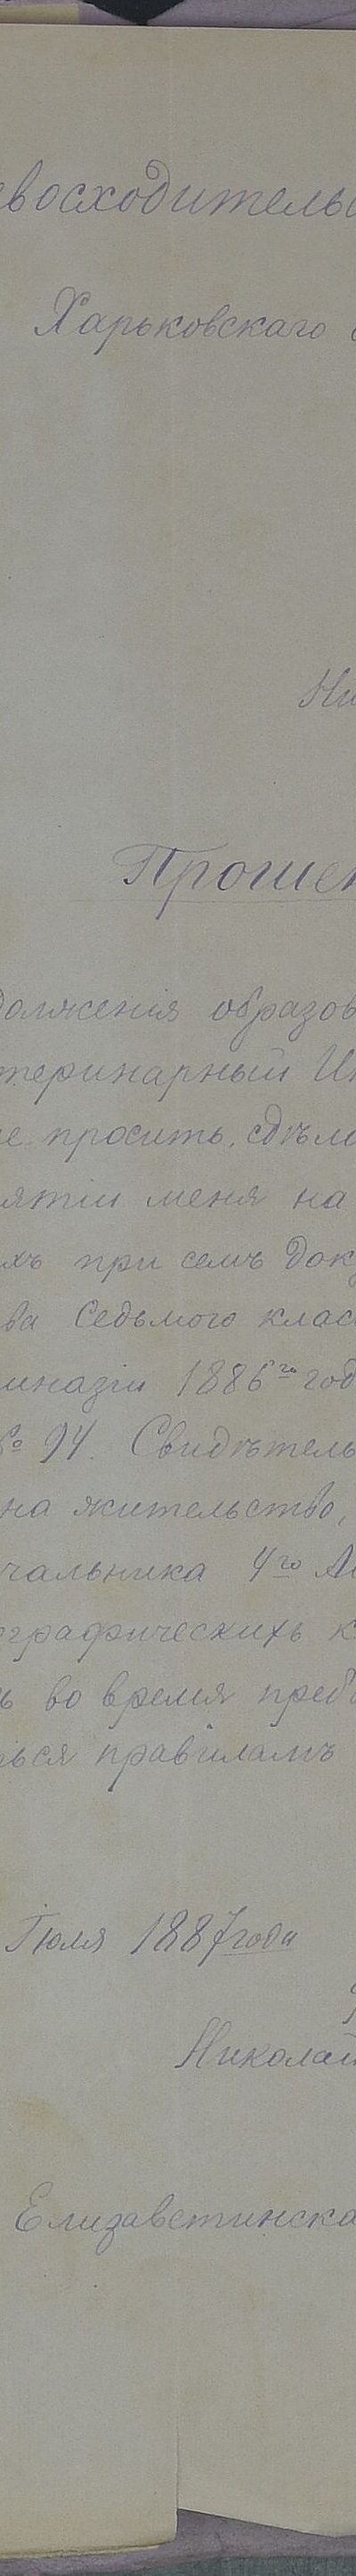 евосходительс
Харьковскаго
Ни
Прошен
должения образов
теринарный Ин
е просить, сдѣла
ятіи меня на
хъ при семъ док
ва Седьмого клас
имназіи 1886го год
№ 94. Свидѣтель
на жительство,
чальника 4го
ографическихъ к
ь во время преб
ься правиламъ
Іюля 1887 года
Николай
Елизаветинска